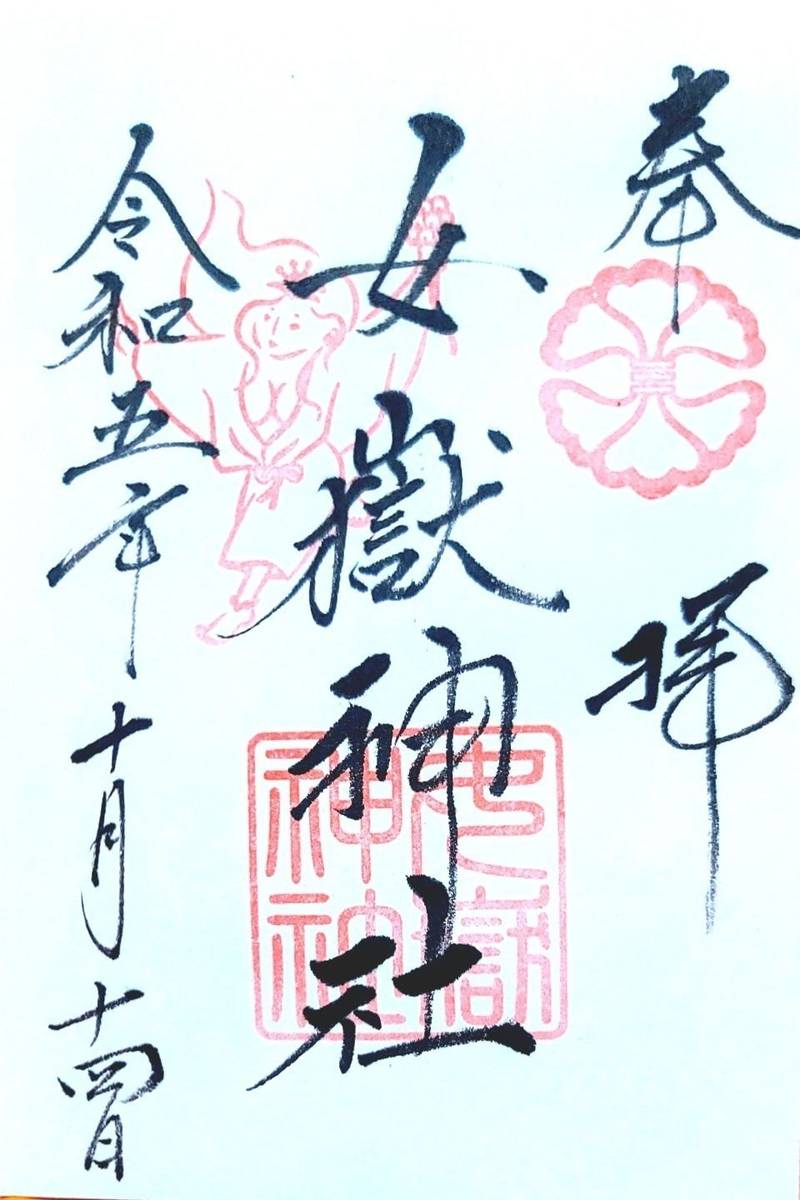 奉拝
女嶽神社
令和五年十月十四日
女嶽
神社